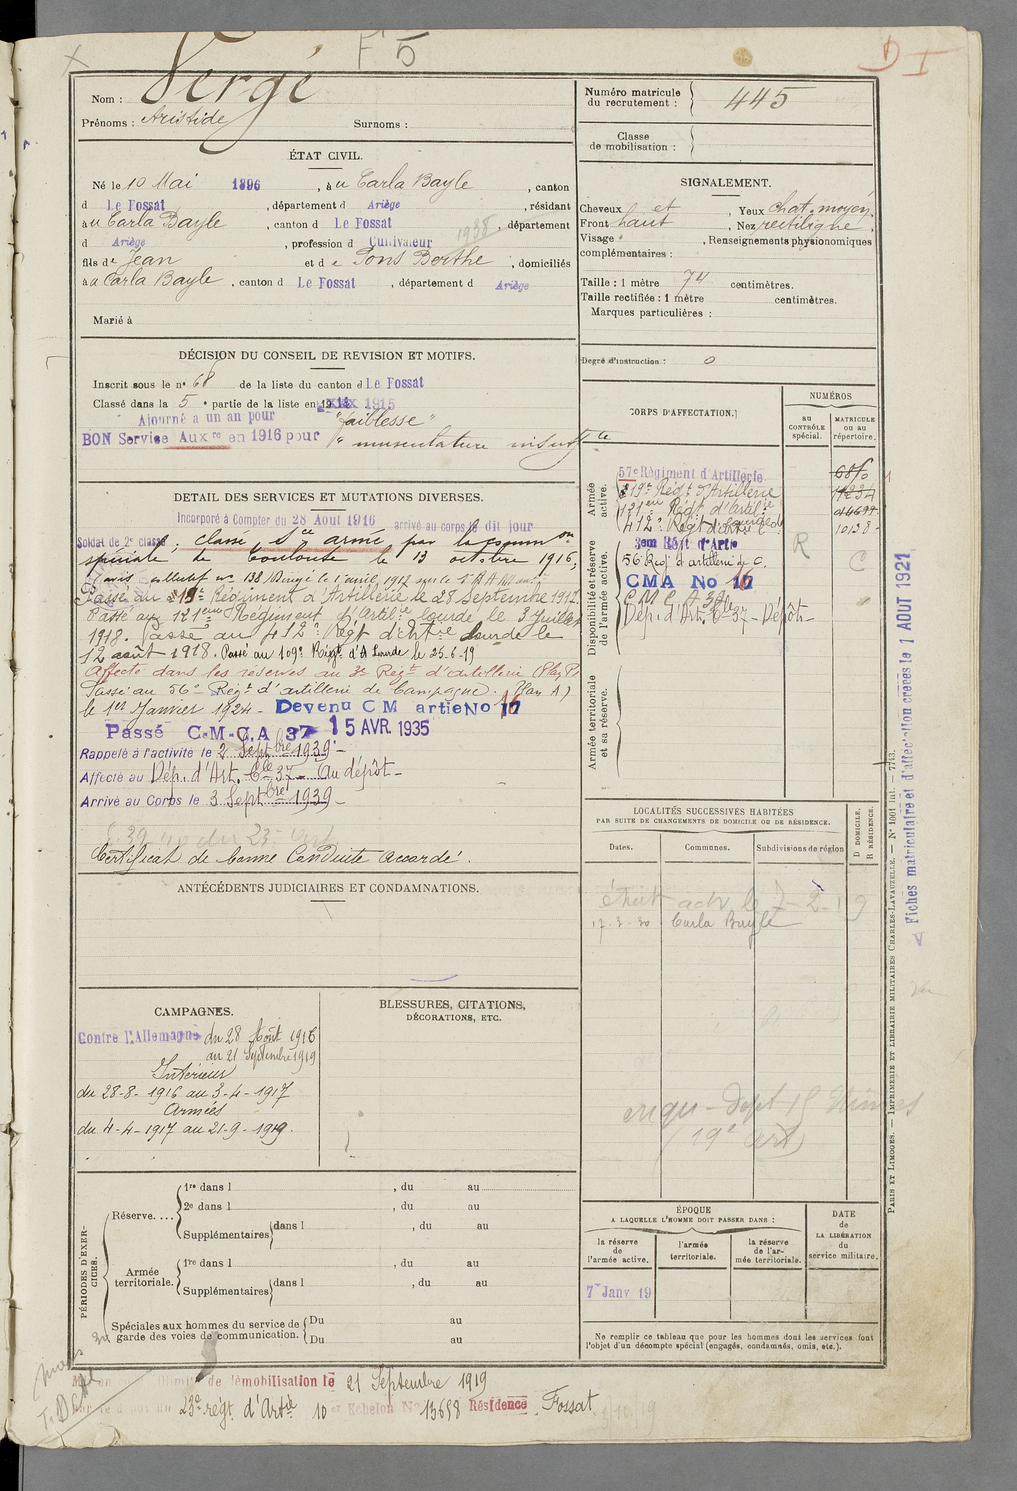 F 5
D I
Nom : Vergé
Prénoms : Aristide Surnoms :
Numéro matricule du recrutement : 445
Classe de mobilisation :
ÉTAT CIVIL.
Né le 10 Mai 1896, à u Carla Bayle, canton
d Le Fossat, département d Ariège, résidant
à u Carla Bayle, canton d Le Fossat, département
1938
d Ariège, profession d Cultivateur
fils de Jean et de Pons Berthe, domiciliés
à u Carla Bayle, canton d Le Fossat, département d Ariège
Marié à
SIGNALEMENT.
Cheveux et, Yeux chat. moyen.
Front haut, Nez rectiligne.
Visage, Renseignements physionomiques
complémentaires :
Taille : 1 mètre 74 centimètres.
Taille rectifiée : 1 mètre centimètres.
Marques particulières :
Degré d'instruction : 0
DÉCISION DU CONSEIL DE REVISION ET MOTIFS.
Inscrit sous le n° 68 de la liste du canton d Le Fossat
Classé dans la 5e partie de la liste en 1915
Ajourné a un an pour "faiblesse"
BON Service Auxre en 1916 pour "musculature insuffte
DETAIL DES SERVICES ET MUTATIONS DIVERSES.
Incorporé à Compter du 28 Aout 1916 arrivé au corps le dit jour
Soldat de 2e classe; classé Sce armé, par la common
spéciale de Toulouse le 13 octobre 1916,
Passé au 19e Régiment d'Artillerie le 28 Septembre 1917.
Passé au 121eme Régiment d'Artilie lourde le 3 Juillet
1918. Passé au 412e Régt d'Artie lourde le
12 août 1918. Passé au 109e Régt d'A Lourde le 25-6-19
Affecté dans les réserves au 3e Régt d'artillerie (Plan P.
Passé au 56e Régt d'artillerie de Campagne. (Plan A)
le 1er Janvier 1924 - Devenu C M artie No 16
Passé C.M.C.A 37 15 AVR. 1935
Rappelé à l'activité le 2 Septbre 1939 -
Affecté au Dép. d'Art. Cle 37 - Au dépôt -
Arrivé au Corps le 3 Septbre 1939 -
Certificat de bonne Conduite accordé.
CORPS D'AFFECTATION.
NUMÉROS
au CONTRÔLE spécial.
MATRICULE ou au répertoire.
Armée active.
57e Régiment d'Artillerie
19e Régt d'Artillerie
121eme Régt d'Artilie
412e Régt d'Artie Lourde
10138
Disponibilité et réserve de l'armée active.
3em Régt d'Artie
56 Reg. d'artillerie de C.
CMA No 16
C M C A 39
Dép. d'Art. Cle 37 - Dépôt -
R
C
Armée territoriale et sa réserve.
LOCALITÉS SUCCESSIVES HABITÉES
PAR SUITE DE CHANGEMENTS DE DOMICILE OU DE RÉSIDENCE.
Dates.
Communes.
Subdivisions de région
D DOMICILE.
R RÉSIDENCE.
17-3-30 Carla Bayle
ANTÉCÉDENTS JUDICIAIRES ET CONDAMNATIONS.
CAMPAGNES.
Contre l'Allemagne du 28 Août 1916
au 21 Septembre 1919
Intérieur
du 28-8-1916 au 3-4-1917
Armées
du 4-4-1917 au 21-9-1919.
BLESSURES, CITATIONS,
DÉCORATIONS, ETC.
(19e art)
PÉRIODES D'EXERCICES.
Réserve....
1re dans l , du au
2e dans l , du au
Supplémentaires dans l , du au
Armée territoriale.
1re dans l , du au
Supplémentaires dans l , du au
Spéciales aux hommes du service de garde des voies de communication.
Du au
Du au
ÉPOQUE
A LAQUELLE L'HOMME DOIT PASSER DANS :
la réserve de l'armée active.
l'armée territoriale.
la réserve de l'armée territoriale.
DATE de LA LIBÉRATION du service militaire.
7 Janv 19
Ne remplir ce tableau que pour les hommes dont les services font
l'objet d'un décompte spécial (engagés, condamnés, omis, etc.).
de démobilisation le 21 Septembre 1919
23e régt d'Artie 10 Echelon No 13698 Résidence Fossat
PARIS ET LIMOGES. — IMPRIMERIE ET LIBRAIRIE MILITAIRES CHARLES-LAVAUZELLE. — N° 1001 int. — 7743.
Fiches matriculaire et d'affectation créées le 1 AOUT 1921